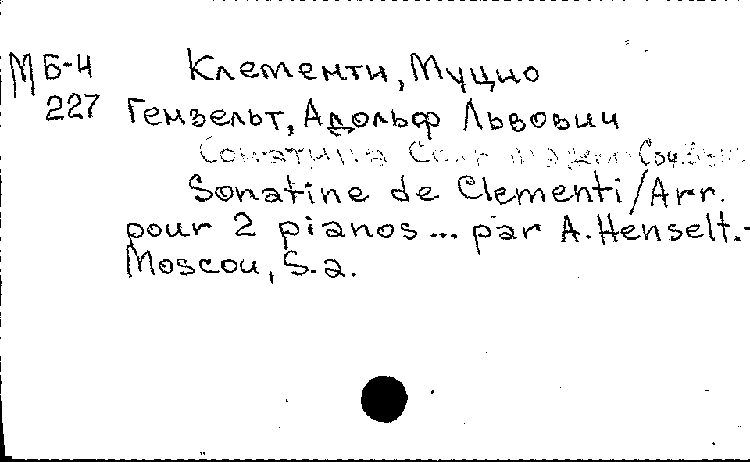 МБ-4 Клементи, Муцио
227 Гензельт, Адольф Львович
Сонатина Соль мажор Соч.
Sonatine de Clementi/Arr.
pour 2 pianos... par A. Henselt.-
Moscou, S.a.